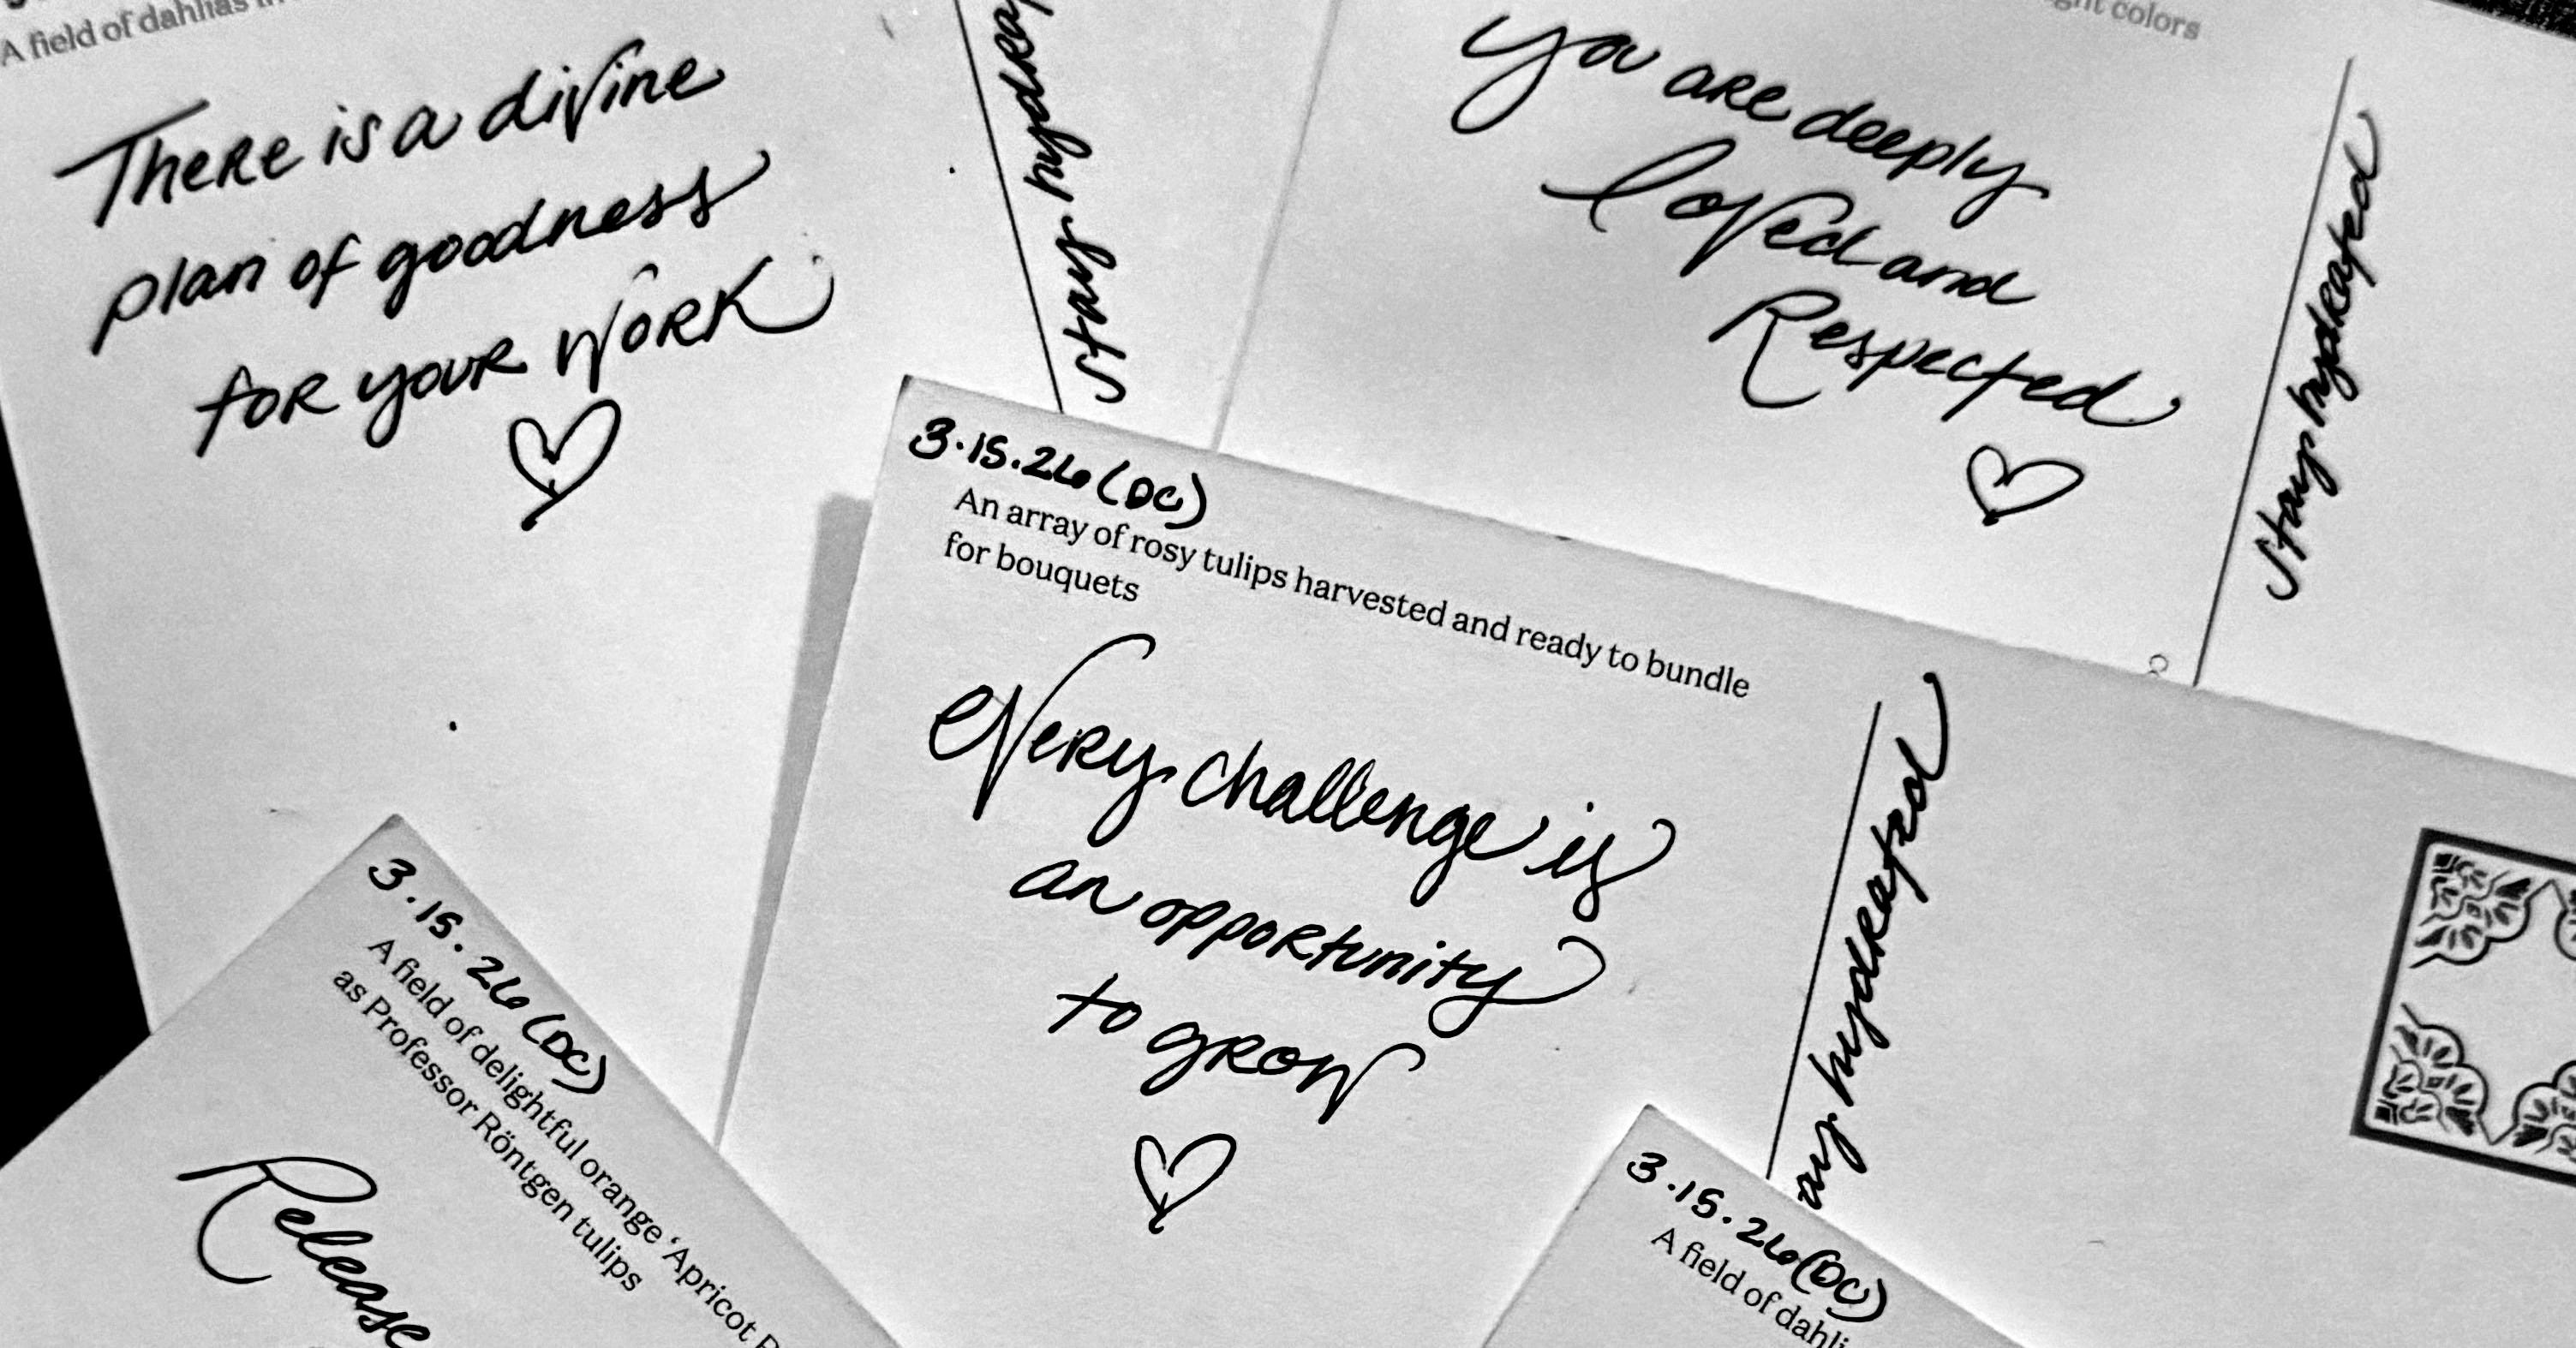 A field of dahlias in
There is a divine
plan of goodness
for your work
stay hydrea
ght colors
you are deeply
loved and
Respected
stay hydreated
3.15.26 (DC)
An array of rosy tulips harvested and ready to bundle
for bouquets
every challenge is
an opportunity
to grow
ay hydreated
3.15.26 (DC)
A field of delightful orange ‘Apricot P
as Professor Röntgen tulips
Release
3.15.26 (DC)
A field of dahli